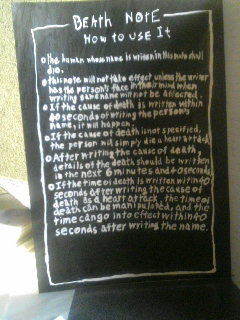 DEATH NOTE
HOW TO USE IT
The human whose name is written in this note shall
die.
this note will not take effect unless the writer
has the person's face in their mind when
writing same name will not be affected.
If the cause of death is written within
40 seconds of writing the person's
name, it will happen.
If the cause of death is not specified,
the person will simply die a heart attack
After writing the cause of death,
details of the death should be written
in the next 6 minutes and 40 seconds
If the time of death is written within 40
seconds after writing the cause of
death as a heart attack, the time of
death can be manipulated, and the
time can go into effect within 40
seconds after writing the name.